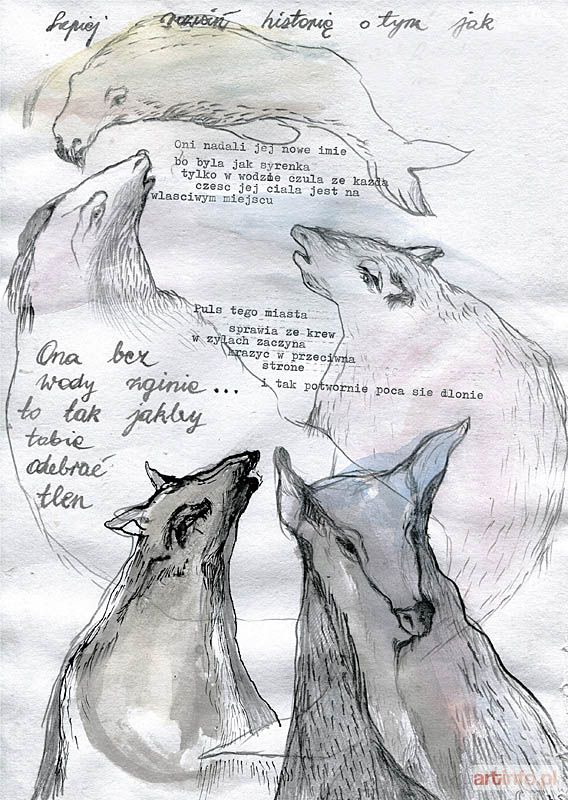 Lepiej mówić historię o tym jak
Oni nadali jej nowe imie
bo byla jak syrenka
tylko w wodzie czula ze kazda
czesc jej ciala jest na
wlasciwym miejscu
Puls tego miasta
sprawia ze krew
w zylach zaczyna
krazyc w przeciwna
strone
i tak potwornie poca sie dlonie
Ona bez
wody zginie...
to tak jakby
tobie
odebrać
tlen
artinfo.pl